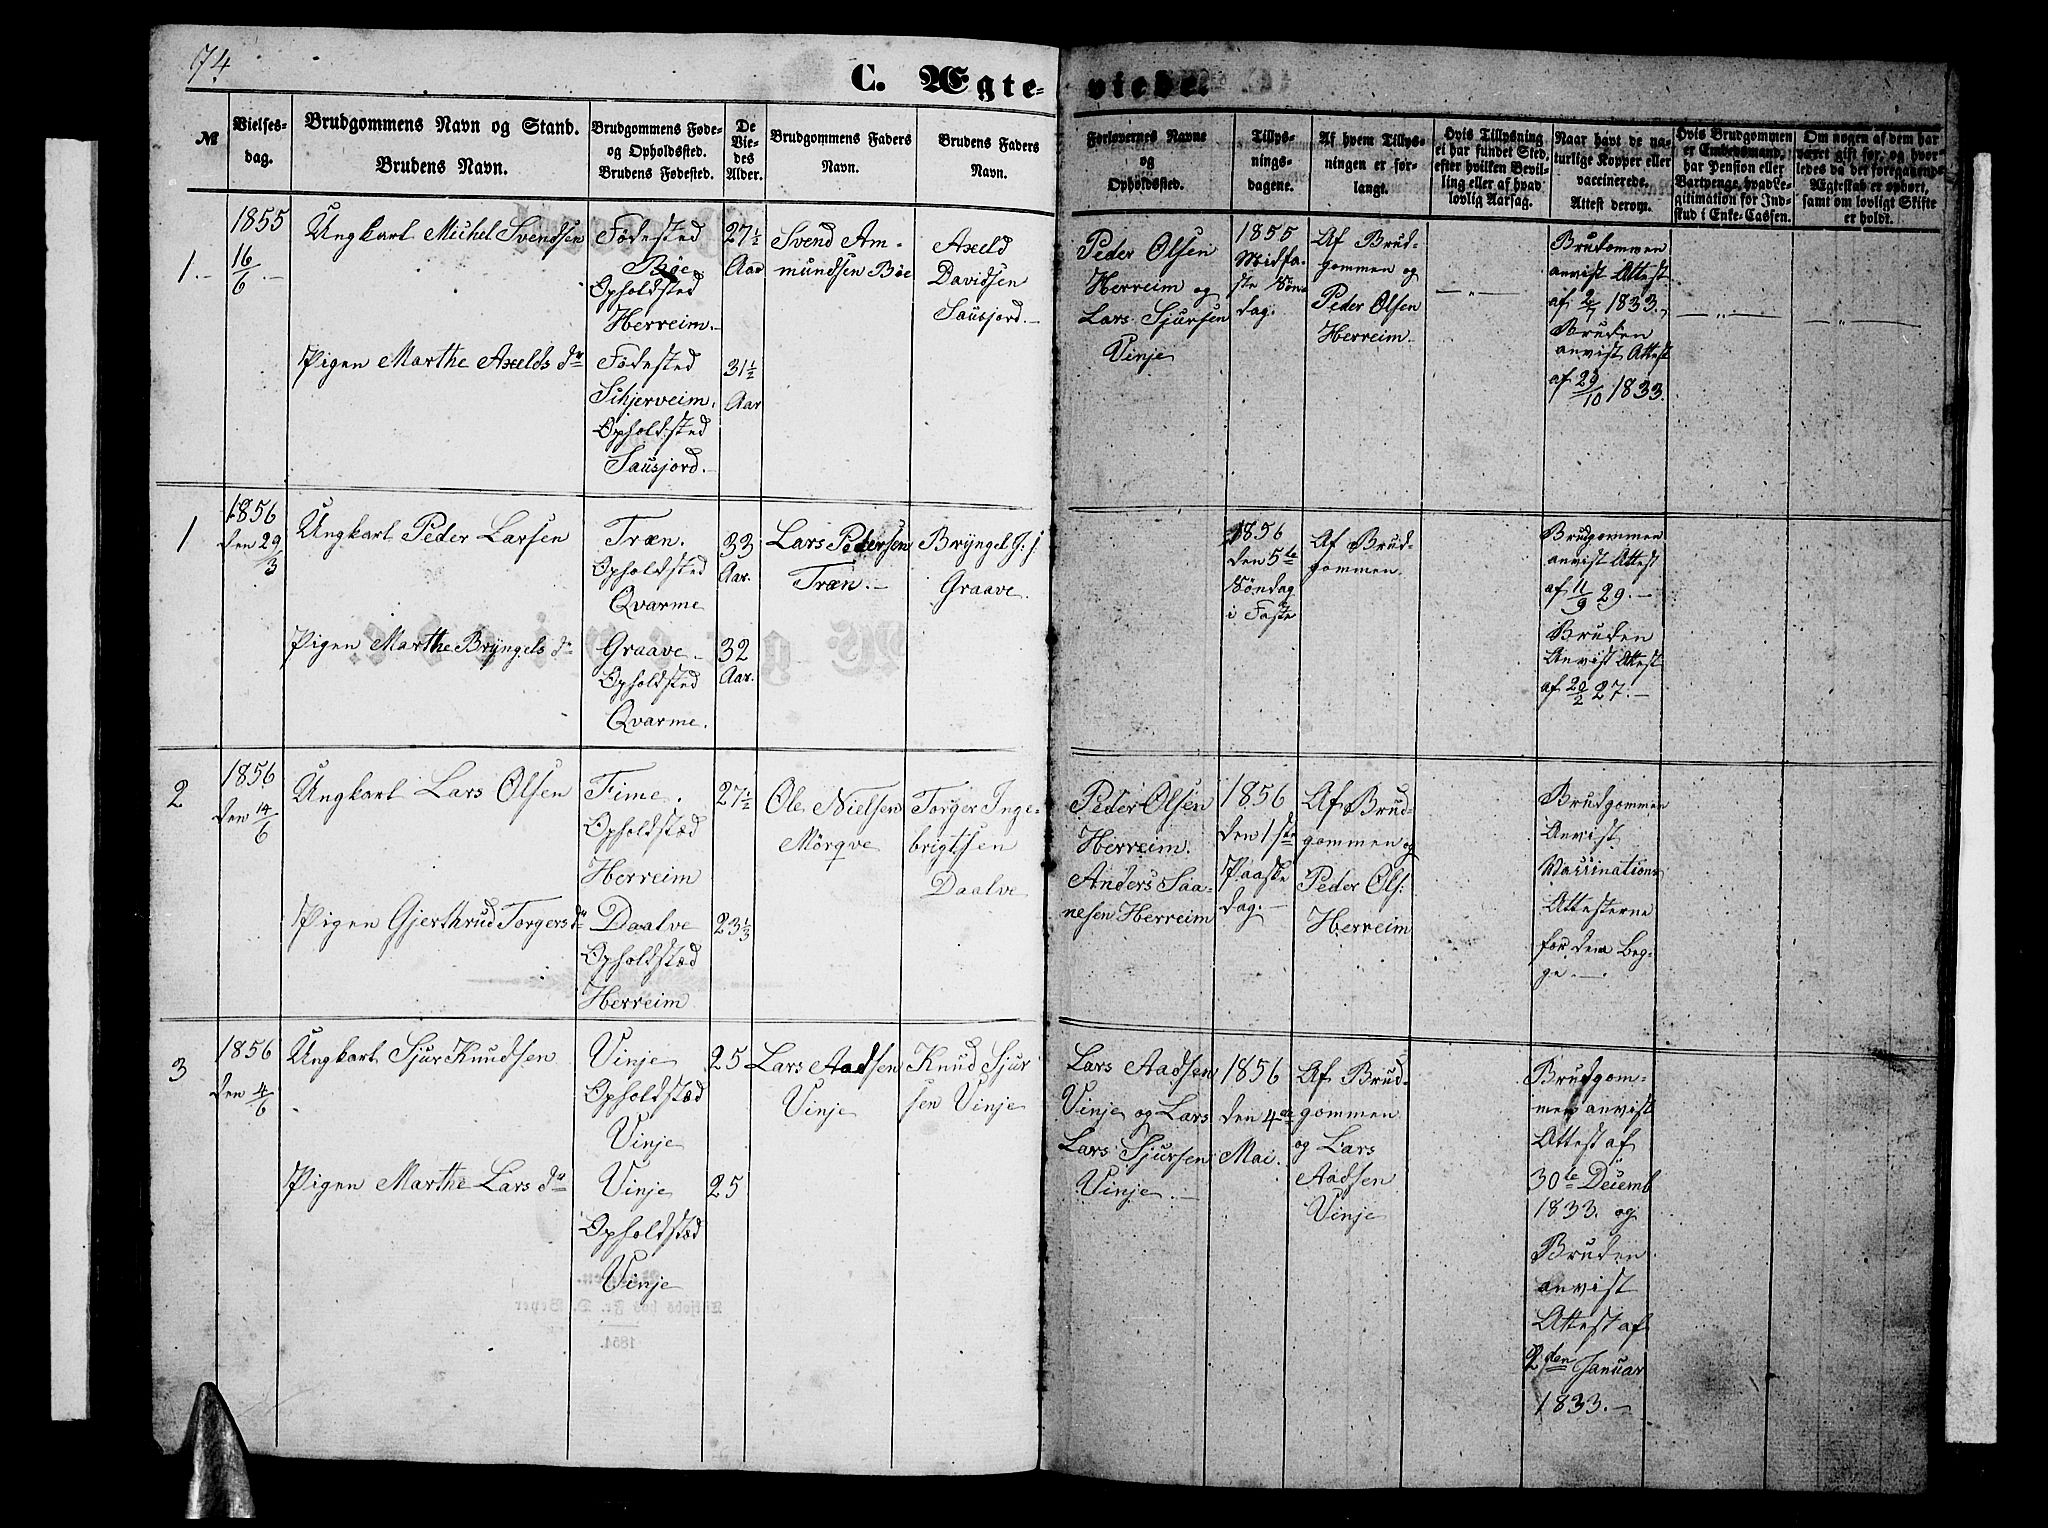 74
C. Ægteviede.
№
Vielsesdag.
Brudgommens Navn og Stand.
Brudens Navn.
Brudgommens Føde-
og Opholdssted.
Brudens Fødested.
De
Vie-
des
Alder.
Brudgommens Faders
Navn.
Brudens Faders
Navn.
Forlovernes Navne
og
Opholdssted.
Tillys-
nings-
dagene.
Af hvem Tillys-
ningen er for-
langt.
Hvis Tillysning
ei har fundet Sted,
efter hvilken Bevil-
ling eller af hvad
lovlig Aarsag.
Naar havt de na-
turlige Kopper eller
vaccinerede.
Attest derom.
Hvis Brudgommen
er Embedsmand,
har Pension eller
Vartpenge, hvad Le-
gitimation for Ind-
skud i Enke-Cassen.
Om nogen af dem har
været gift før, og hvor-
ledes da det foregaaende
Ægteskab er ophørt,
samt om lovligt Skifte
er holdt.
1.-
1855
16/6.-
Ungkarl Michel Svendsen
Pigen Marthe Axelds dr
Fødested
Bøe
Opholdsted
Herreim.-
Fødested
Schjerveim.
Opholdsted
Sausjord.-
27½
Aar
31½
Aar
Svend Am-
mundsen Bøe
Axeld
Davidsen
Sausjord.-
Peder Olsen
Herreim og
Lars Sjursen
Vinje
1855
Midfa-
ste Søn-
dag.
Af Brud-
gommen og
Peder Olsen
Herreim.-
Brudgommen
anvist Attest
af 2/7 1833.-
Bruden
anvist Attest
af 29/10 1833.
1
1856
den 29/3
Ungkarl Peder Larsen
Pigen Marthe Bryngels dr
Træn.
Opholdsted
Qvarme
Graave.
Opholdsted
Qvarme.
33
Aar.
32
Aar.
Lars Pedersen
Træn.-
Bryngel J. J.
Graave.
1856
den 5te
Søndag
i Faste
Af Brud-
gommen.
Brudgommen
anvist Attest
af 11/9 29.-
Bruden
Anvist Attest
af 20/2 27.-
2
1856
den 14/6
Ungkarl Lars Olsen
Pigen Gjerthrud Torgers dr
Fime.
Opholdstæd
Herreim
Daalve
Opholdstæd
Herreim
27½
23⅓
Ole Nielsen
Mörqve
Torger Inge-
brigtsen
Daalve
Peder Olsen
Herreim.
Anders Saa-
nesen Herreim
1856
den 1ste
Paaske
dag.-
Af Brud-
gommen og
Peder Ols:
Herreim
Brudgommen
Anvist
Vaccinations
Attesterne
for dem Beg-
ge.-
3
1856
den 4/6
Ungkarl Sjur Knudsen
Pigen Marthe Lars dr
Vinje
Opholdstæd
Vinje
Vinje
Opholdstæd
Vinje
25
25
Lars Aadsen
Vinje
Knud Sjur
sen Vinje
Lars Aadsen
Vinje og Lars
Lars Sjursen
Vinje.-
1856
den 4de
Mai.
Af Brud-
gommen
og Lars
Aadsen
Vinje
Brudgom-
men anvist
Attest af
30te Decemb
1833. og
Bruden
anvist
Attest af
2den Januar
1833.-